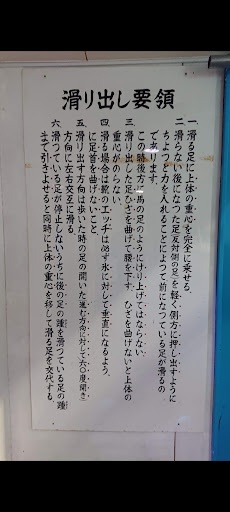 滑り出し要領
一、滑る足に上体の重心を完全に乗せる。
二、滑らない後になった足(反対側の足)を軽く側方に押し出すように
ちょっと力を入れることによって前になっている足が滑るの
であります。
この時後方に馬の足のようにけり上げてはならない。
三、滑り出した足ひざを曲げて腰を下す。ひざを曲げないと上体の
重心がのらない。
四、滑る場合は靴のエッヂは必ず氷に対して垂直になるよう、
に足首を曲げないこと。
五、滑り出す方向は歩いた時の足の開いた(進む方向に対して六〇度開き)
方向に左右交互に滑る。
六、滑っている足が停止しないうちに後の足の踵を滑っている足の踵
まで引きよせると同時に上体の重心を移して滑る足を交代する。